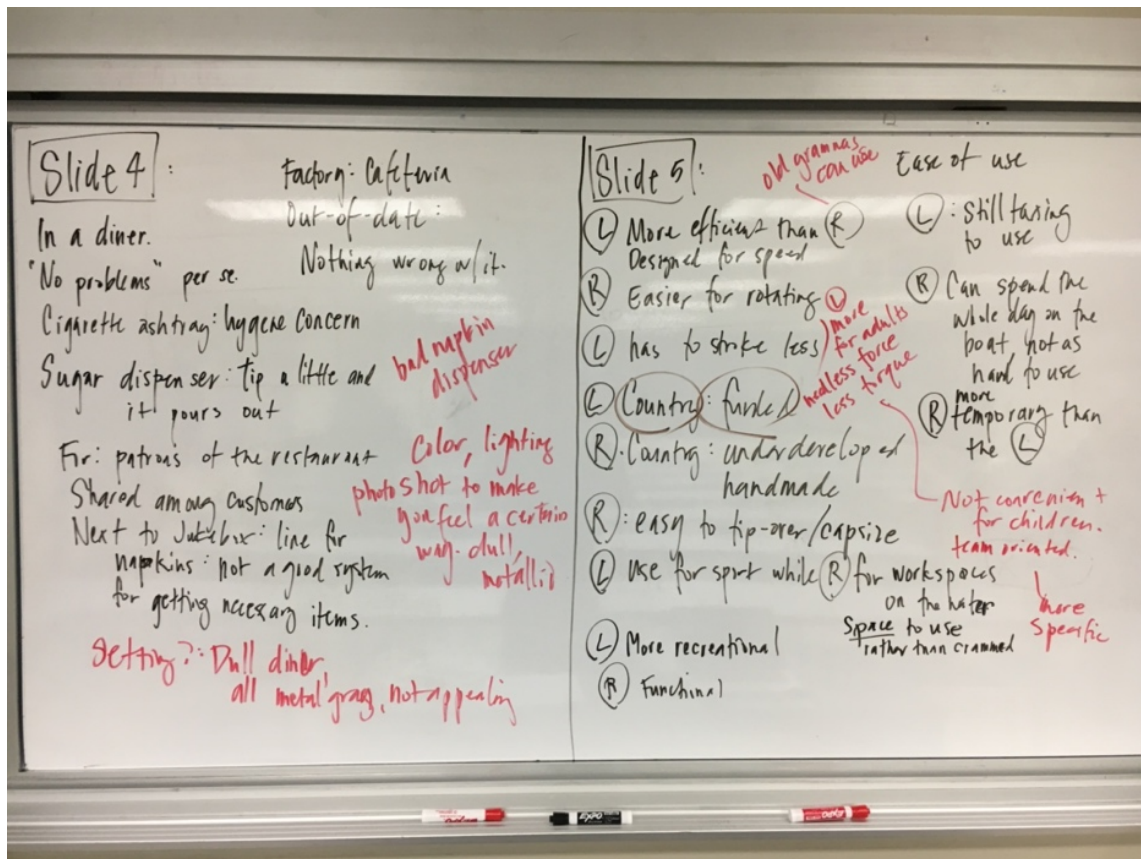 Slide 4 :
Factory: Cafeteria
Out-of-date:
Nothing wrong w/it.
In a diner.
"No problems" per se.
Cigarette ashtray: hygene concern
Sugar dispenser: tip a little and
it pours out
bad napkin
dispenser
For: patrons of the restaurant
Shared among customers
Next to Jukebox: line for
napkins: not a good system
for getting necessary items.
Color, lighting
photo shot to make
you feel a certain
way. dull,
metallic
Setting?: Dull diner,
all metal gray, not appealing
Slide 5 :
old grammas
can use
L More efficient than R
Designed for speed
R Easier for rotating
L has to stroke less
L more
for adults
needless force
less torque
L Country: funded
R. Country: underdeveloped
handmade
R: easy to tip-over/capsize
L Use for sport while R for workspaces
on the water
Space to use
rather than crammed
L More recreational
R Functional
Ease of use
L: Still taxing
to use
R Can spend the
whole day on the
boat, not as
hard to use
R more temporary than
the L
Not convenient
for children.
team oriented.
more
specific
EXPO
EXPO
EXPO